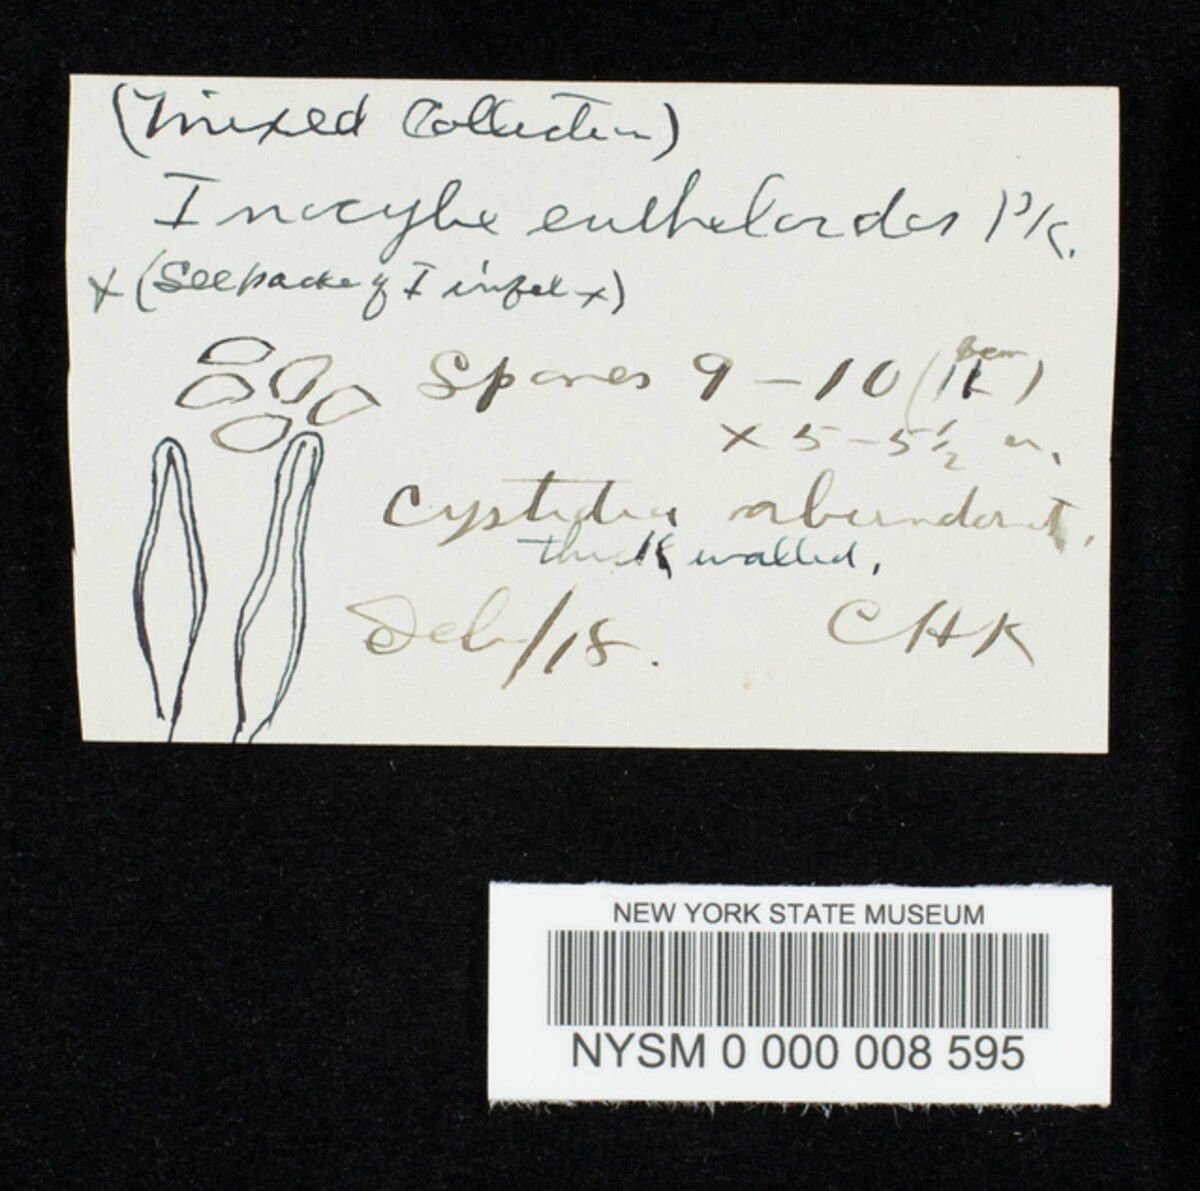 (Mixed Collection)
Inocybe eutheloides Pk.
x (See packe of I infel x)
Spores 9 – 10 (11)
x 5 – 5 1/2
Cystidia abundant.
thick walled.
Feb/18. CHK
NEW YORK STATE MUSEUM
NYSM 0 000 008 595